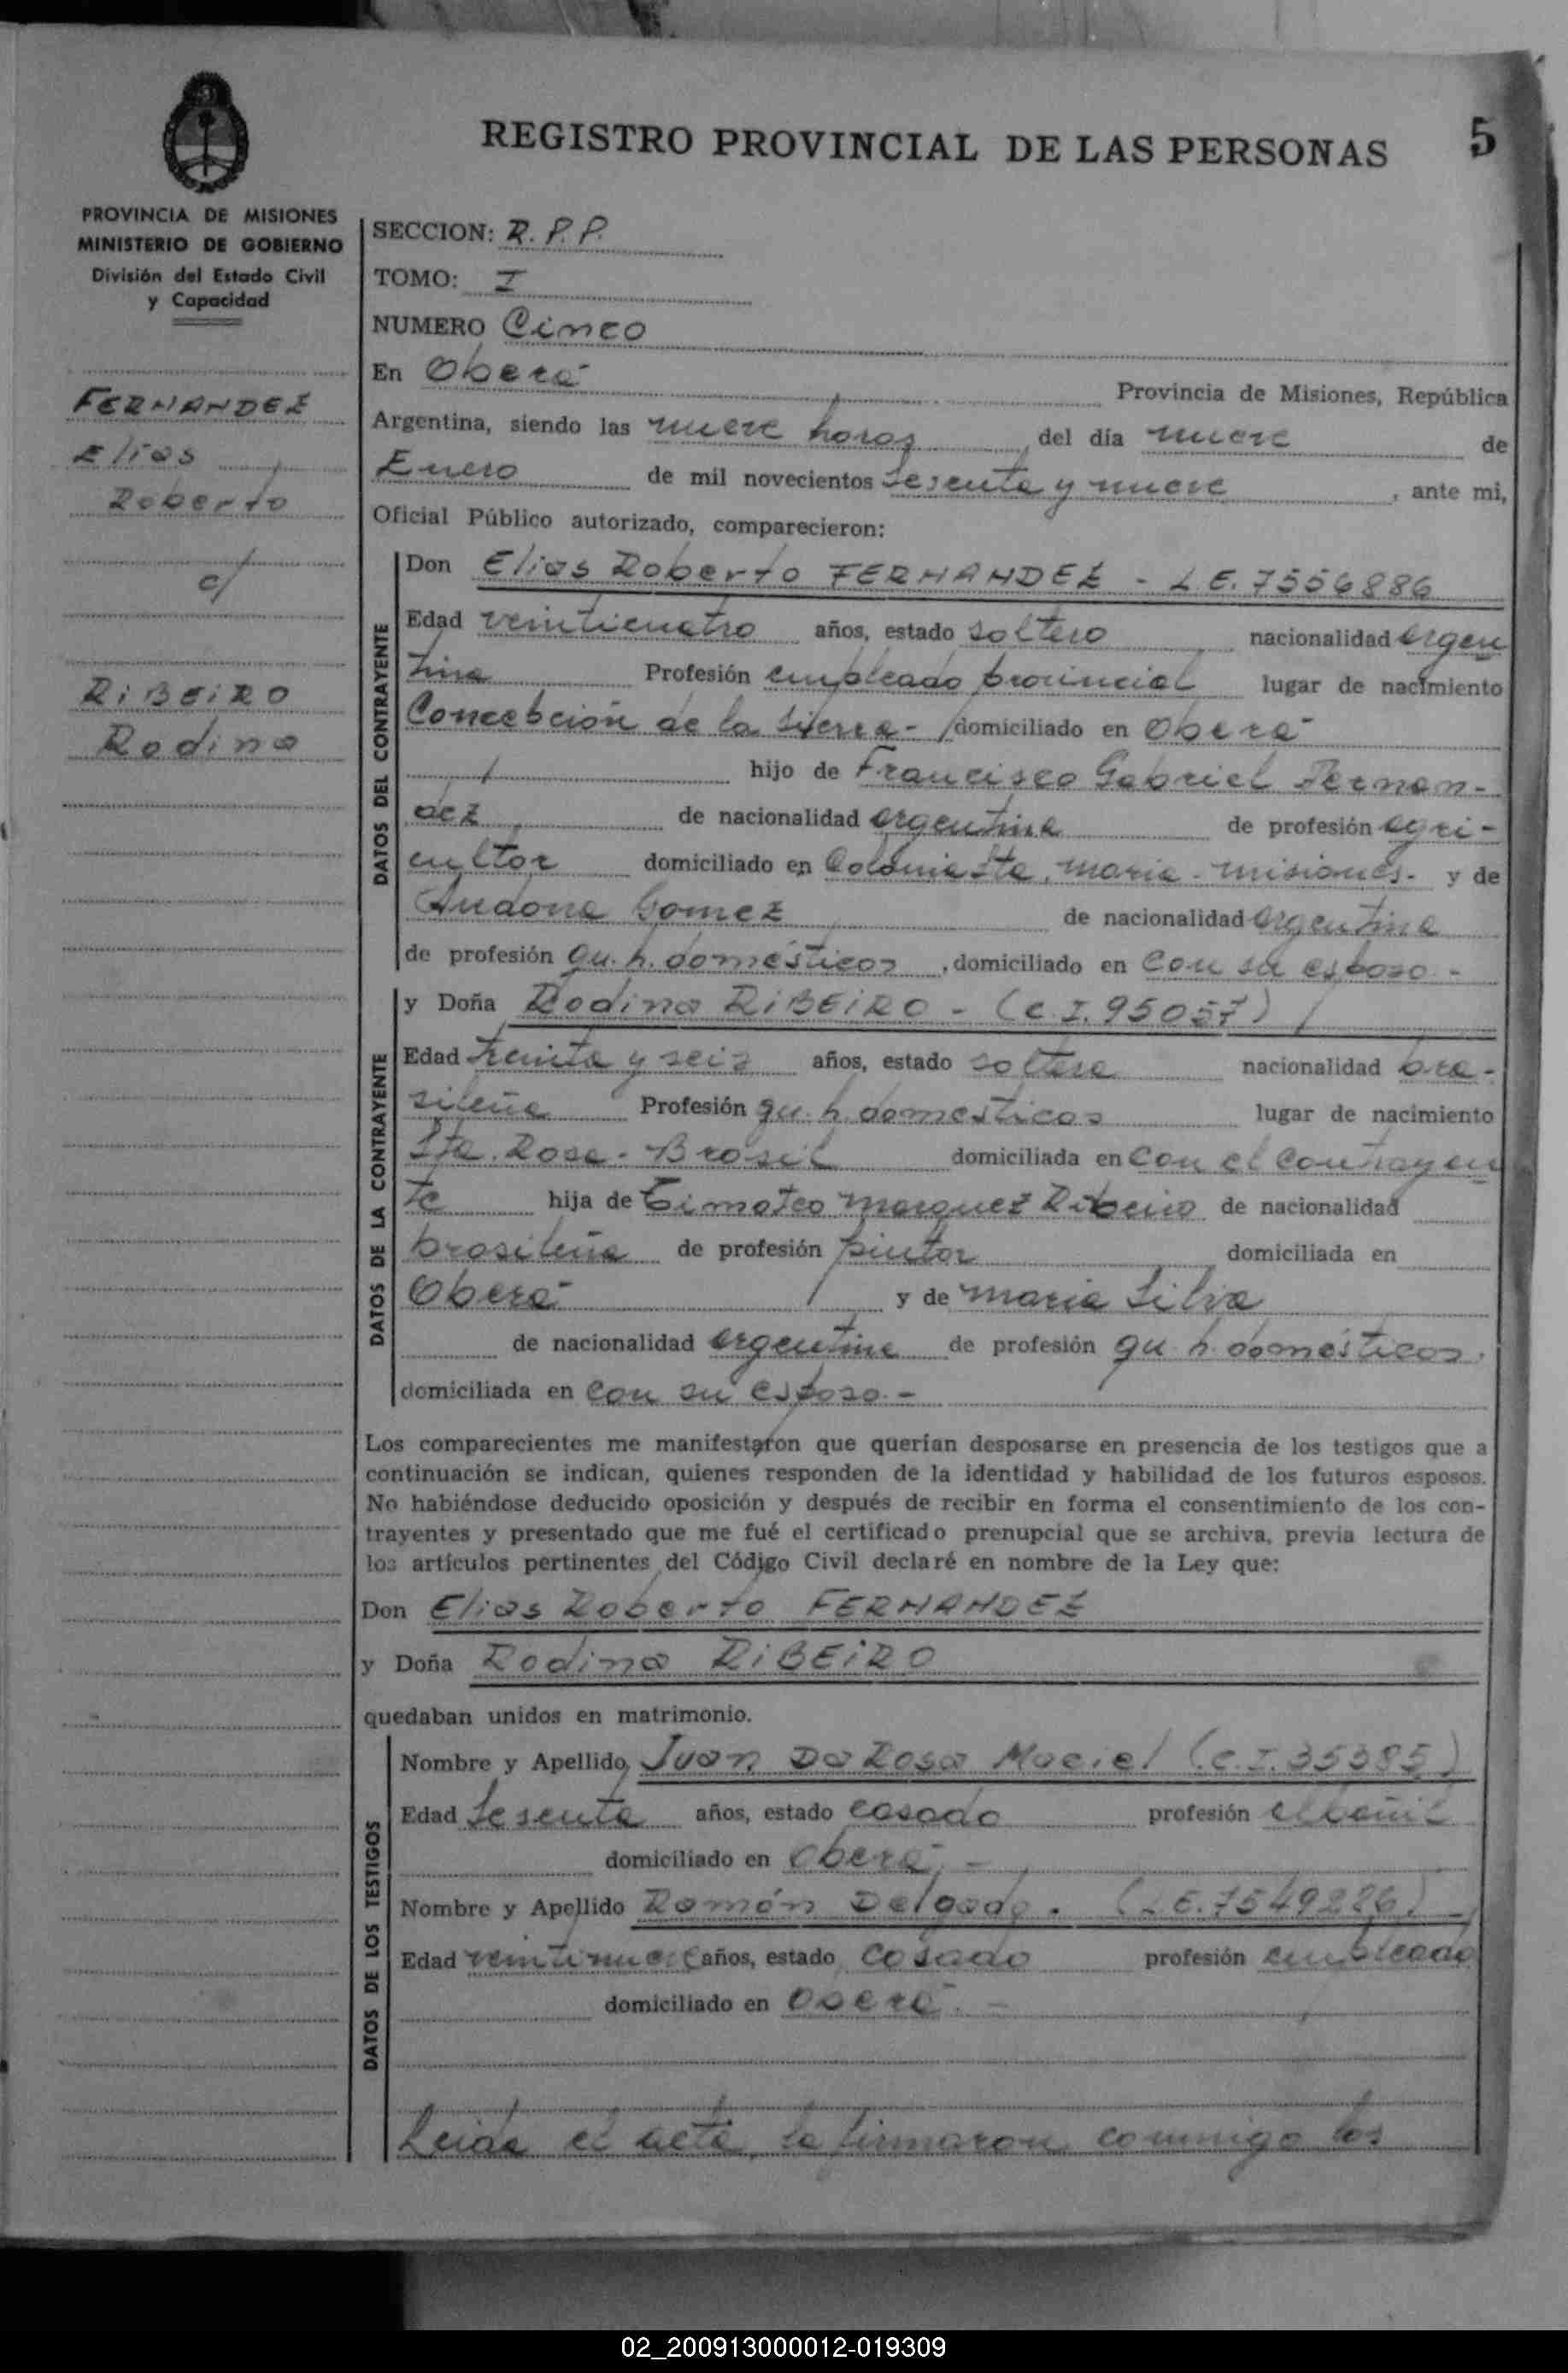 REGISTRO PROVINCIAL DE LAS PERSONAS 5
PROVINCIA DE MISIONES
MINISTERIO DE GOBIERNO
División del Estado Civil
y Capacidad
FERNANDEZ
Elias
Roberto
c/
RiBEiRO
Rodina
SECCION: R. P. P.
TOMO: I
NUMERO Cinco
En Oberá Provincia de Misiones, República
Argentina, siendo las nueve horas del día nueve de
Enero de mil novecientos sesenta y nueve, ante mi,
Oficial Público autorizado, comparecieron:
DATOS DEL CONTRAYENTE
Don Elias Roberto FERNANDEZ - L.E. 7556886
Edad veinticuatro años, estado soltero nacionalidad argen
tina Profesión empleado provincial lugar de nacimiento
Concepción de la Sierra - domiciliado en Oberá
hijo de Francisco Gabriel Fernan-
dez de nacionalidad argentina de profesión agri-
cultor domiciliado en Colonia Sta. Maria - Misiones - y de
Gomez de nacionalidad argentina
de profesión qu. h. domésticos, domiciliado en con su esposo -
DATOS DE LA CONTRAYENTE
y Doña Rodina RiBEiRO - (C.I. 95057)
Edad treinta y seis años, estado soltera nacionalidad bra-
sileña Profesión qu. h. domesticos lugar de nacimiento
Sta. Rosa - Brasil domiciliada en con el contrayen
te hija de Timoteo Marquez Ribeiro de nacionalidad
brasileña de profesión pintor domiciliada en
Oberá y de Maria Silva
de nacionalidad argentina de profesión qu. h. domésticos.
domiciliada en con su esposo -
Los comparecientes me manifestaron que querían desposarse en presencia de los testigos que a
continuación se indican, quienes responden de la identidad y habilidad de los futuros esposos.
No habiéndose deducido oposición y después de recibir en forma el consentimiento de los con-
trayentes y presentado que me fué el certificado prenupcial que se archiva, previa lectura de
los artículos pertinentes del Código Civil declaré en nombre de la Ley que:
Don Elias Roberto FERNANDEZ
y Doña Rodina RiBEiRO
quedaban unidos en matrimonio.
DATOS DE LOS TESTIGOS
Nombre y Apellido Juan Da Rosa Maciel (C.I. 35385)
Edad Sesenta años, estado casado profesión albañil
domiciliado en Oberá -
Nombre y Apellido Ramón Delgado. (L.E. 7549226)
Edad veintinueve años, estado casado profesión empleado
domiciliado en Oberá. -
Leida el acta, la firmaron conmigo los
02_200913000012-019309